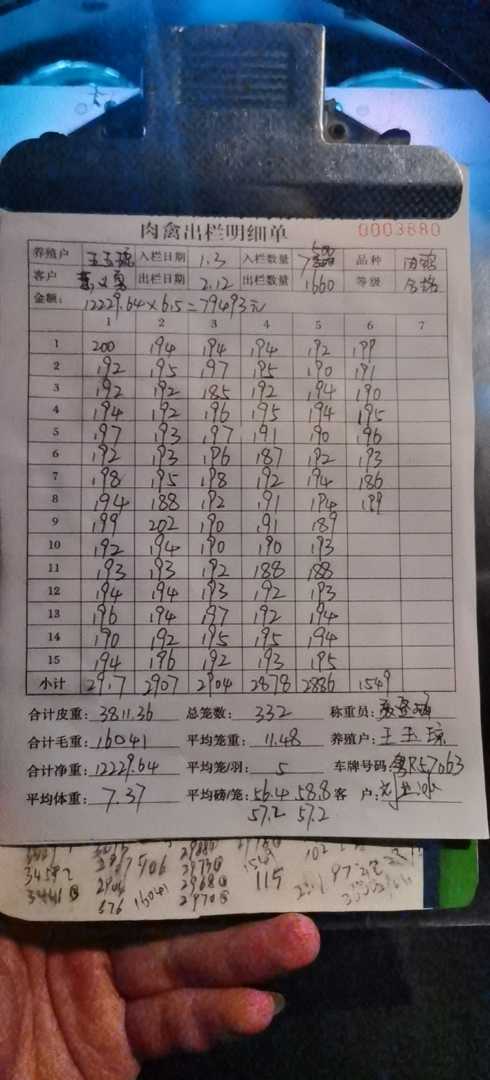 肉禽出栏明细单 0003880
养殖户 王玉琼 入栏日期 1.3 入栏数量 品种 肉鹅
客户 出栏日期 2.12 出栏数量 1660 等级 合格
金额: 12229.64×6.5=79493元
1 2 3 4 5 6 7
1 200 194 194 194 192 199
2 192 195 197 195 190 191
3 192 192 185 192 194 190
4 194 192 196 195 194 195
5 197 193 197 191 190 196
6 192 193 196 187 192 193
7 198 195 198 192 194 186
8 194 188 192 191 194 199
9 199 202 190 191 189
10 192 194 190 190 193
11 193 193 192 188 188
12 194 194 193 192 193
13 196 194 197 192 194
14 190 192 195 195 194
15 194 196 192 193 195
小计 2917 2907 2904 2878 2886 1549
合计皮重: 3811.36 总笼数: 332 称重员:
合计毛重: 16041 平均笼重: 11.48 养殖户: 王玉琼
合计净重: 12229.64 平均笼/羽: 5 车牌号码: 粤R57063
平均体重: 7.37 平均磅/笼: 56.4 58.8 客 户:
57.2 57.2
3441 576 16041 2970 115